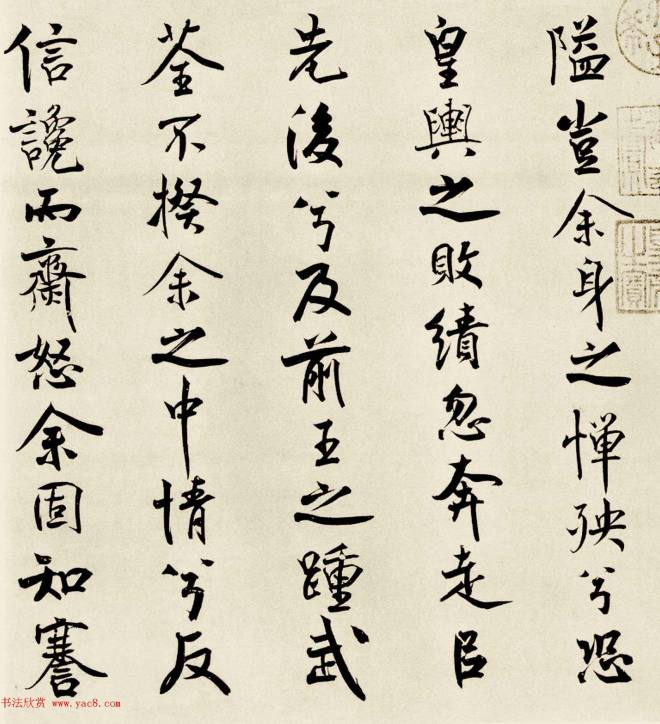 隘豈余身之憚殃兮恐
皇輿之敗績忽奔走以
先後兮及前王之踵武
荃不揆余之中情兮反
信讒而齌怒余固知謇
书法欣赏 www.yac8.com